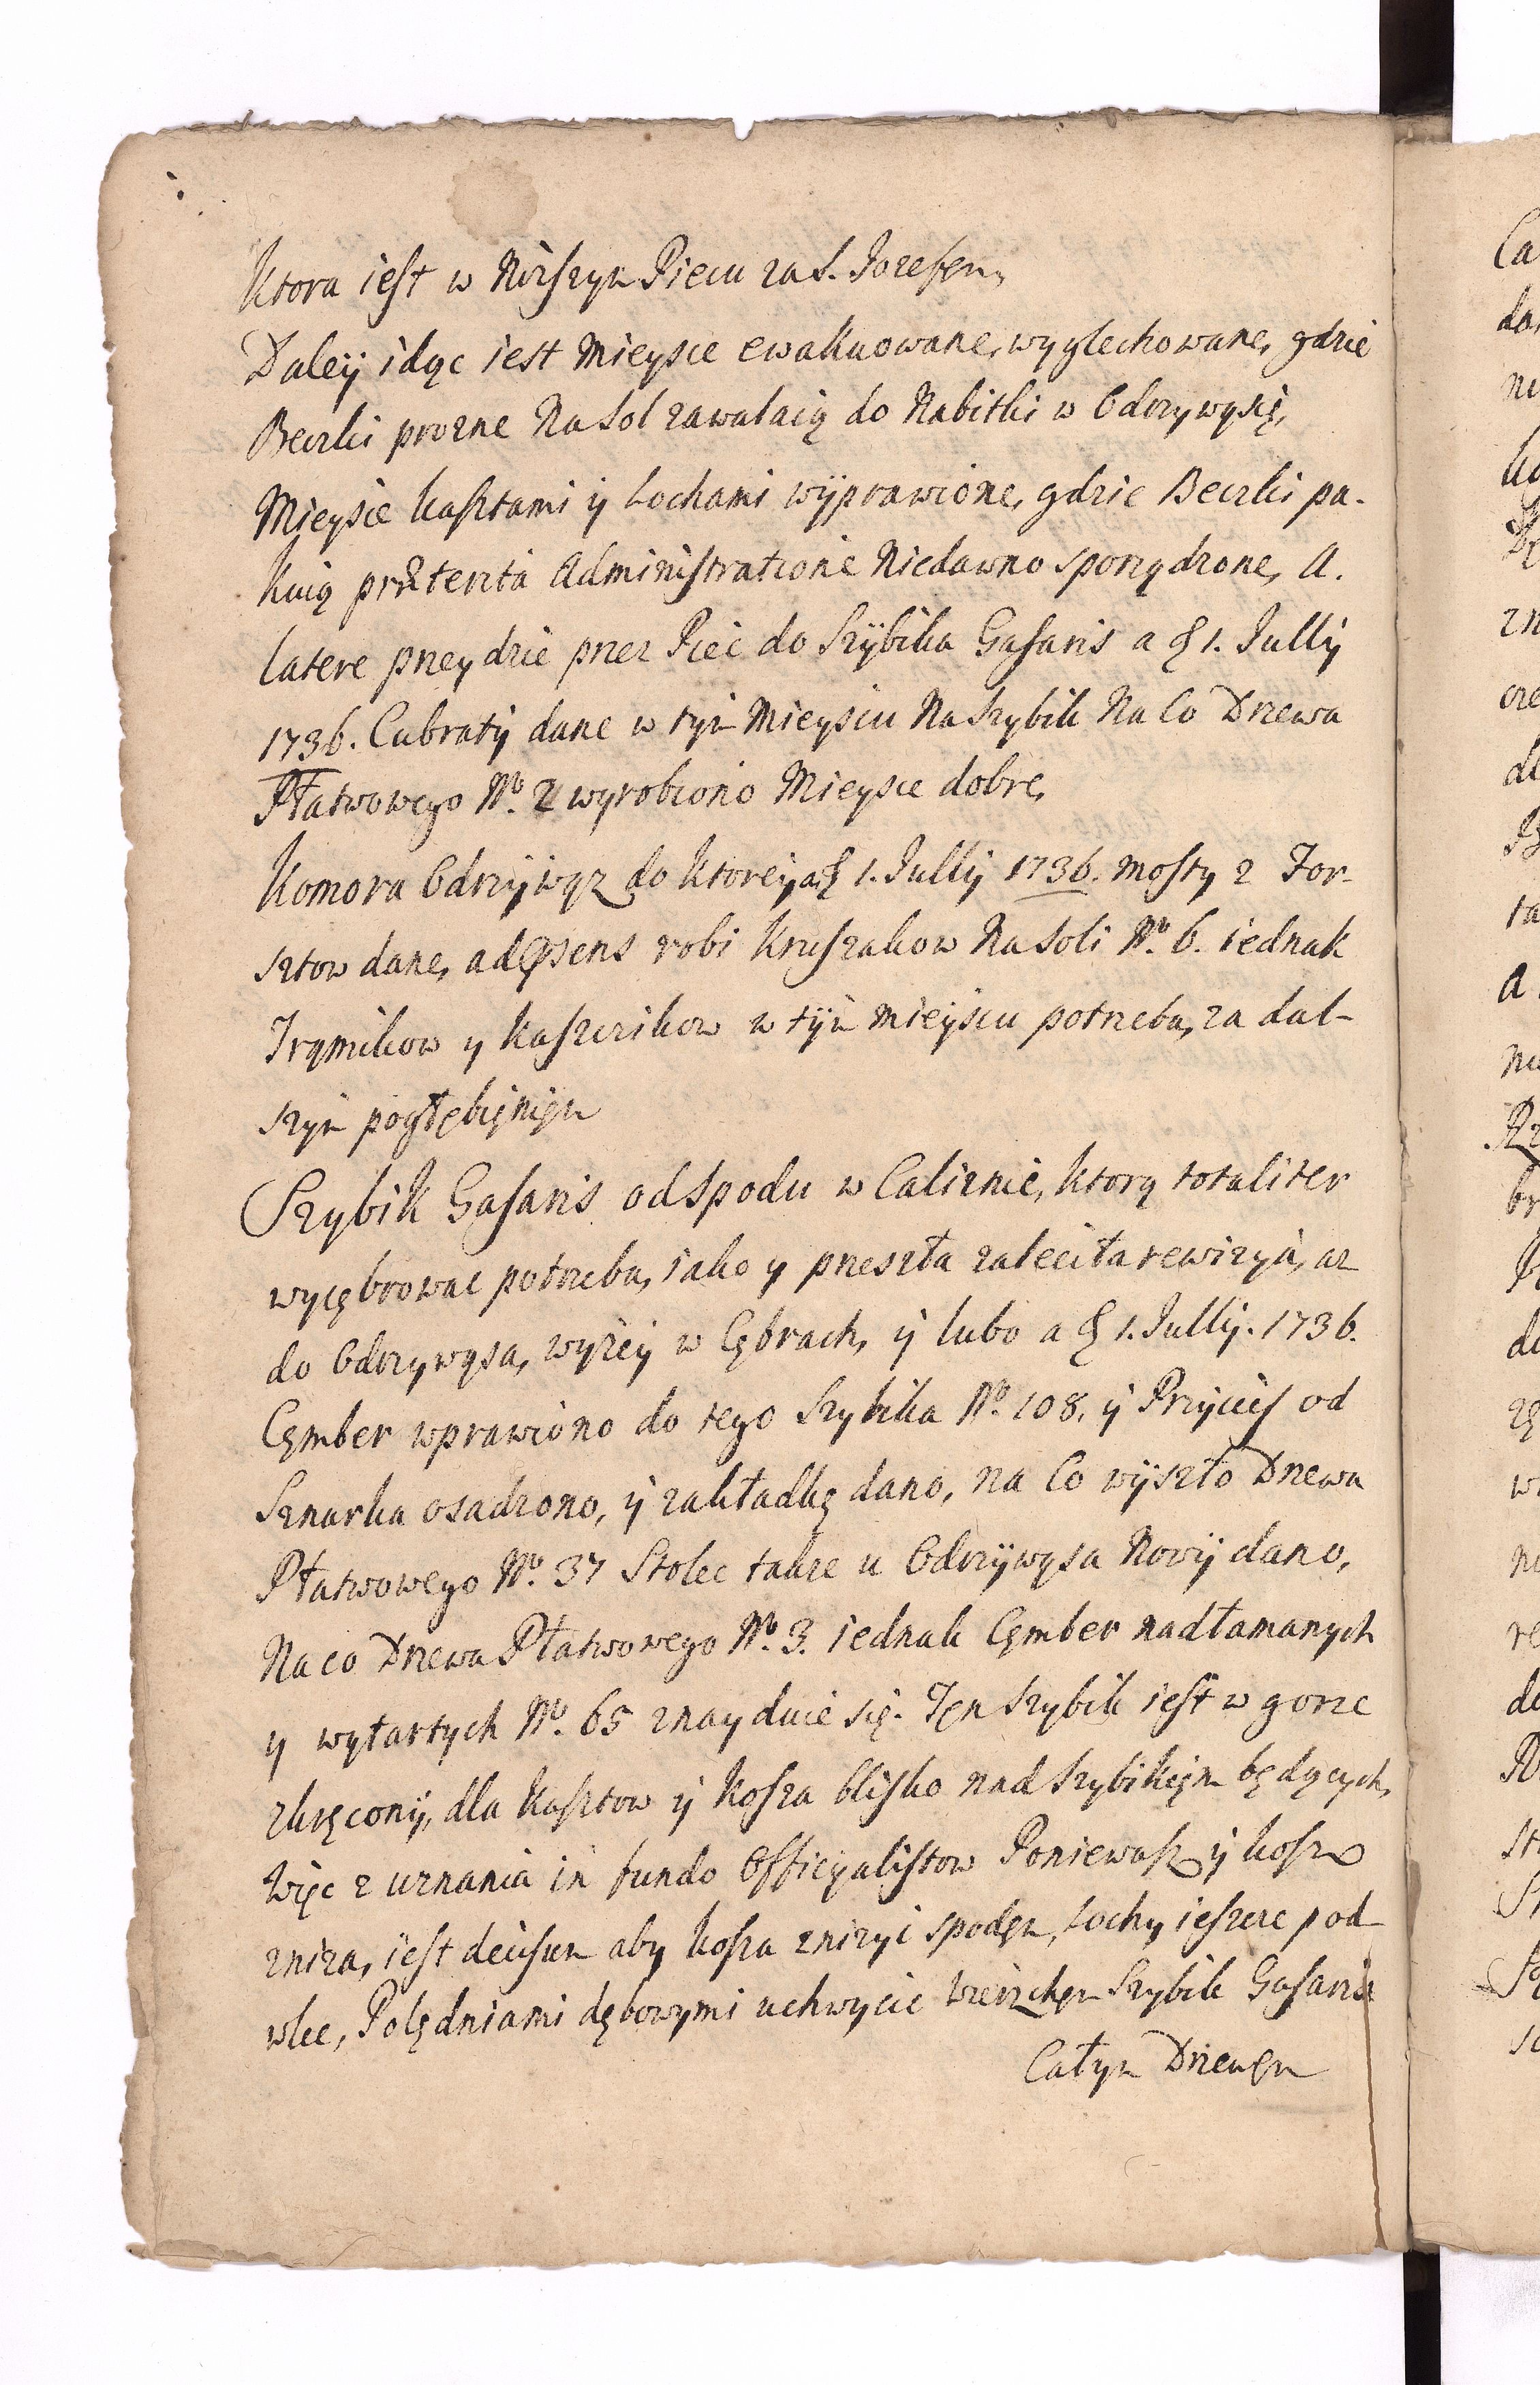 Ktora iest w Niższym Piecu za S. Jozefem,
Daley idąc iest Mieysce ewakuowane, wyglechowane, gdzie
Beczki prozne Na Sol zawalaią do Nabitki w Odrzywąsię,
Mieysce kasztami y Lochami wyprawione, gdzie Beczki pa-
kuią præterita Administratione Niedawno sporządzone, A.
latere przeydzie przez Piec do Szybika Gasaris a 1. Julij
1736. Cubraty dane w tym Mieyscu Na Szybik Na Co Drzewa
Płatwowego No. 2 wyrobiono Mieysce dobre,
Komora Odrzywąz do ktorey a 1. Julij 1736. mosty z For-
sztow dane, ad præsens robi Kruszakow Na Soli No. 6. iednak
Trąmikow y kaszczikow w tym mieyscu potrzeba, za dal-
szym pogłębięnięm
Szybik Gasaris od Spodu w Caliznie, ktorą totaliter
wycębrowac potrzeba, iako y przeszła zaleciła rewizya, az
do Odrzywąsa, wyżey w Cębrach, y lubo a 1. Julij. 1736.
Cęmber wprawiono do tego Szybika No. 108. y Przycieś od
Sznarka osadzono, y zakładkę dano, na Co wyszło Drzewa
Płatwowego No. 37 Stolec takze u Odrzywąsa Nowy dano,
Na co Drzewa Płatwowego No. 3. iednak Cęmber nadłamanych
y wytartych No. 65 znayduie się. Tęn Szybik iest w gorze
zkręcony, dla kasztow y kosza blisko nad Szybikięm będących,
Więc z uznania in fundo Officyalistow Poniewasz y kosz
zniza, iest decisum aby kosza znizyć spodęm, Lochy ieszcze pod
wlec, Polędniami dębowymi uchwycic Wierzchęm Szybik Gasaris
Całym Drzewęm
Ca